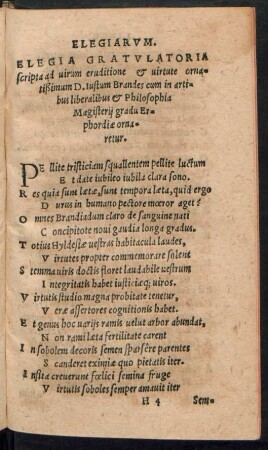 ELEGIARVM.
ELEGIA GRATVLATORIA
scripta ad uirum eruditione & uirtute orna-
tißimum D. Iustum Brandes cum in arti-
bus liberalibus & Philosophia
Magisterij gradu Er-
phordiæ orna-
retur.
PEllite tristiciam squallentem pellite luctum
Et date iubileo iubila clara sono.
Res quia sunt lætæ, sunt tempora læta, quid ergo
Durus in humano pectore mœror aget?
Omnes Brandiadum claro de sanguine nati
Concipitote noui gaudia longa gradus.
Totius Hyldesiæ uestras habitacula laudes,
Virtutes propter commemorare solent
Stemma uiris doctis floret laudabile uestrum
Integritatis habet iusticiæq; uiros.
Virtutis studio magna probitate tenetur,
Veræ assertores cognitionis habet.
Et genus hoc uarijs ramis uelut arbor abundat,
Non rami læta fertilitate carent
In sobolem decoris semen sparsêre parentes
Scanderet eximiæ quo pietatis iter.
Insita creuerunt fœlici semina fruge
Virtutis soboles semper amauit iter
H 4 Sem-